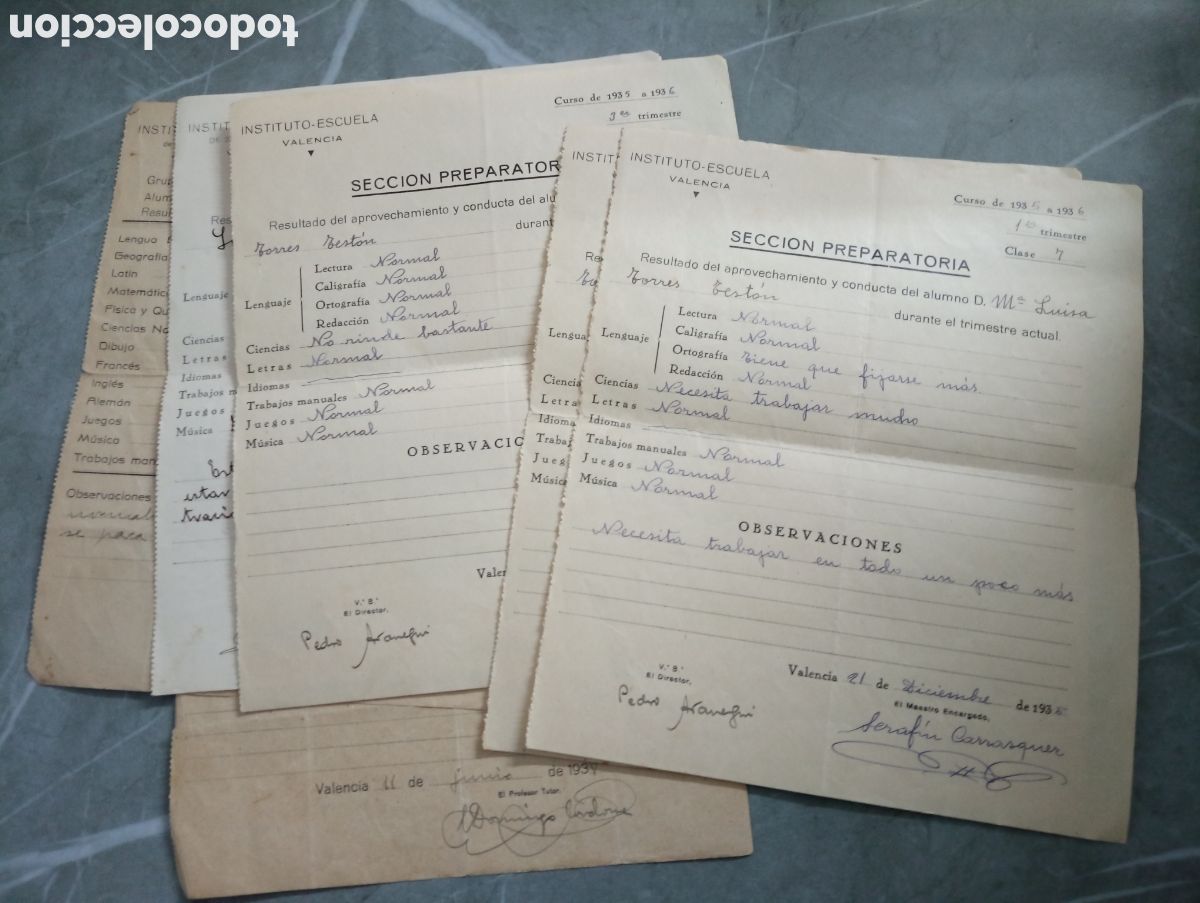 todocoleccion
INSTI
Gru
Alum
Resul
Lengua E
Geografía
Latín
Matemática
Física y Qu
Ciencias Na
Dibujo
Francés
Inglés
Alemán
Juegos
Música
Trabajos man
Observaciones
se paca
Valencia 11 de junio de 193
El Profesor Tutor,
INSTIT
Res
Lenguaje
Ciencias
Letras
Idiomas
Trabajos m
Juegos
Música
Est
estar
INSTITUTO-ESCUELA
VALENCIA
Curso de 1935 a 1936
3er trimestre
SECCION PREPARATOR
Resultado del aprovechamiento y conducta del alu
Torres Testón durant
Lenguaje
Lectura Normal
Caligrafía Normal
Ortografía Normal
Redacción Normal
Ciencias No rinde bastante
Letras Normal
Idiomas
Trabajos manuales Normal
Juegos Normal
Música Normal
OBSERVACIO
Valen
V.º B.º
El Director,
Pedro Aranegui
INSTIT
Re
To
Lengua
Ciencia
Letra
Idioma
Trabaj
Jueg
Músic
INSTITUTO-ESCUELA
VALENCIA
Curso de 1935 a 1936
1er trimestre
Clase 7
SECCION PREPARATORIA
Resultado del aprovechamiento y conducta del alumno D. Mª Luisa
Torres Testón durante el trimestre actual.
Lenguaje
Lectura Normal
Caligrafía Normal
Ortografía Tiene que fijarse más
Redacción Normal
Ciencias Necesita trabajar mucho
Letras Normal
Idiomas
Trabajos manuales Normal
Juegos Normal
Música Normal
OBSERVACIONES
Necesita trabajar en todo un poco más
Valencia 21 de Diciembre de 1935
V.º B.º
El Director,
El Maestro Encargado,
Pedro Aranegui
Serafín Carrasquer